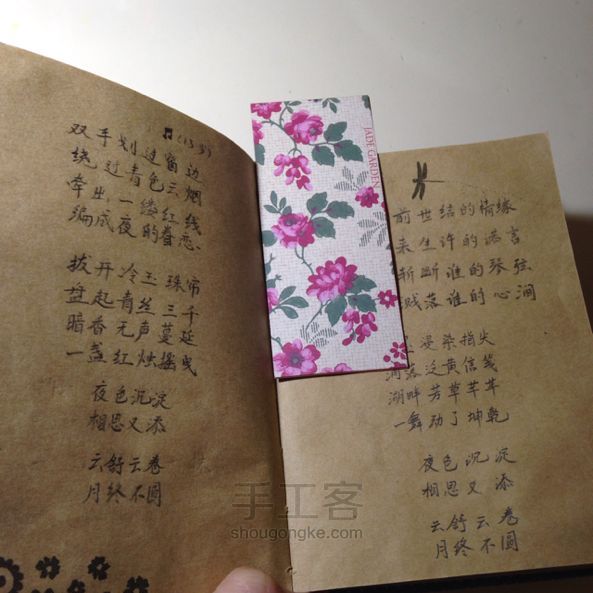 双手划过窗边
绕过青色云烟
牵出一缕红线
编成夜的眷恋
拔开冷玉珠帘
盘起青丝三千
暗香无声蔓延
一盏红烛摇曳
夜色沉淀
相思又添
云舒云卷
月终不圆
JADE GARDEN
前世结的情缘
来生许的诺言
斩断谁的琴弦
溅落谁的心涧
染指尖
落泛黄信笺
湖畔芳草芊芊
一舞动了坤乾
夜色沉淀
相思又添
云舒云卷
月终不圆
手工客
shougongke.com